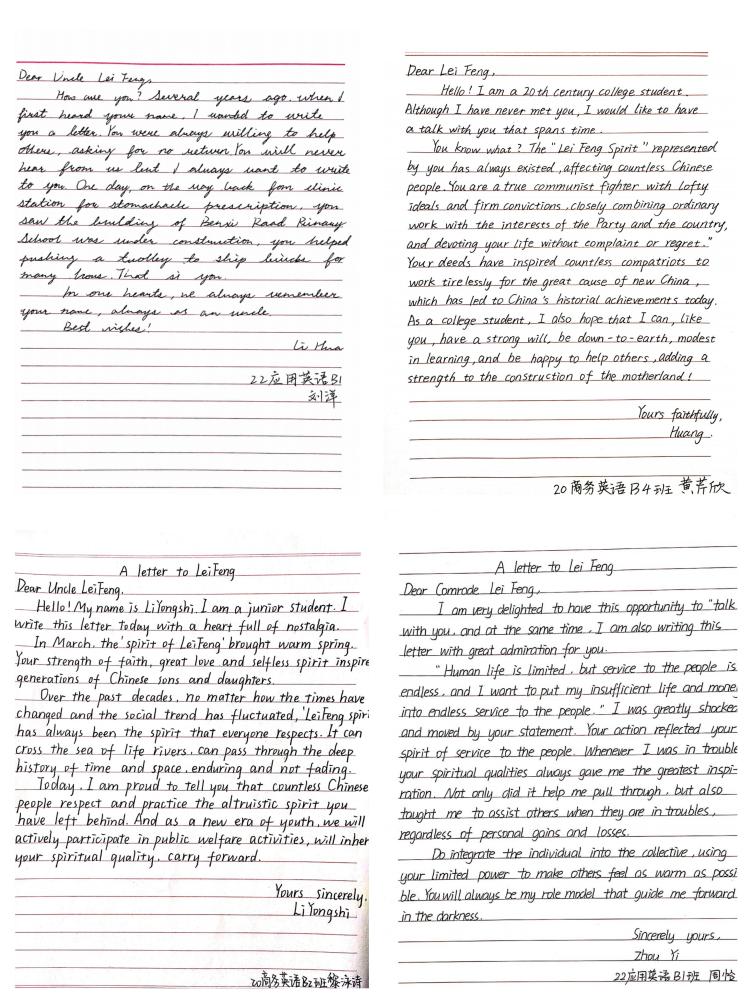 Dear Uncle Lei Feng,
How are you? Several years ago, when I
first heard your name, I wanted to write
you a letter. You were always willing to help
others, asking for no return. You will never
hear from us but I always want to write
to you. One day, on the way back from clinic
station for stomachache prescription, you
saw the building of Benxi Road Primary
School was under construction, you helped
pushing a trolley to ship bricks for
many hours. That is you.
In our hearts, we always remember
your name, always as an uncle.
Best wishes!
Li Hua
22应用英语B1
刘洋
Dear Lei Feng,
Hello! I am a 20th century college student.
Although I have never met you, I would like to have
a talk with you that spans time.
You know what? The "Lei Feng Spirit" represented
by you has always existed, affecting countless Chinese
people. You are a true communist fighter with lofty
ideals and firm convictions, closely combining ordinary
work with the interests of the Party and the country,
and devoting your life without complaint or regret."
Your deeds have inspired countless compatriots to
work tirelessly for the great cause of new China,
which has led to China's historial achievements today.
As a college student, I also hope that I can, like
you, have a strong will, be down-to-earth, modest
in learning, and be happy to help others, adding a
strength to the construction of the motherland!
Yours faithfully,
Huang.
20商务英语B4班 黄芹欣
A letter to LeiFeng
Dear Uncle LeiFeng,
Hello! My name is LiYongshi. I am a junior student. I
write this letter today with a heart full of nostalgia.
In March, the 'spirit of LeiFeng' brought warm spring.
Your strength of faith, great love and selfless spirit inspire
generations of Chinese sons and daughters.
Over the past decades, no matter how the times have
changed and the social trend has fluctuated, 'LeiFeng spiri
has always been the spirit that everyone respects. It can
cross the sea of life rivers, can pass through the deep
history of time and space, enduring and not fading.
Today, I am proud to tell you that countless Chinese
people respect and practice the altruistic spirit you
have left behind. And as a new era of youth, we will
actively participate in public welfare activities, will inher
your spiritual quality, carry forward.
Yours sincerely,
LiYongshi
20商务英语B2班黎泳诗
A letter to Lei Feng
Dear Comrade Lei Feng,
I am very delighted to have this opportunity to "talk
with you, and at the same time, I am also writing this
letter with great admiration for you.
"Human life is limited, but service to the people is
endless, and I want to put my insufficient life and mone
into endless service to the people." I was greatly shocked
and moved by your statement. Your action reflected your
spirit of service to the people. Whenever I was in trouble
your spiritual qualities always gave me the greatest inspi-
ration. Not only did it help me pull through, but also
taught me to assist others when they are in troubles,
regardless of personal gains and losses.
Do integrate the individual into the collective, using
your limited power to make others feel as warm as possi
ble. You will always be my role model that guide me forward
in the darkness.
Sincerely yours,
Zhou Yi
22应用英语B1班 周怡